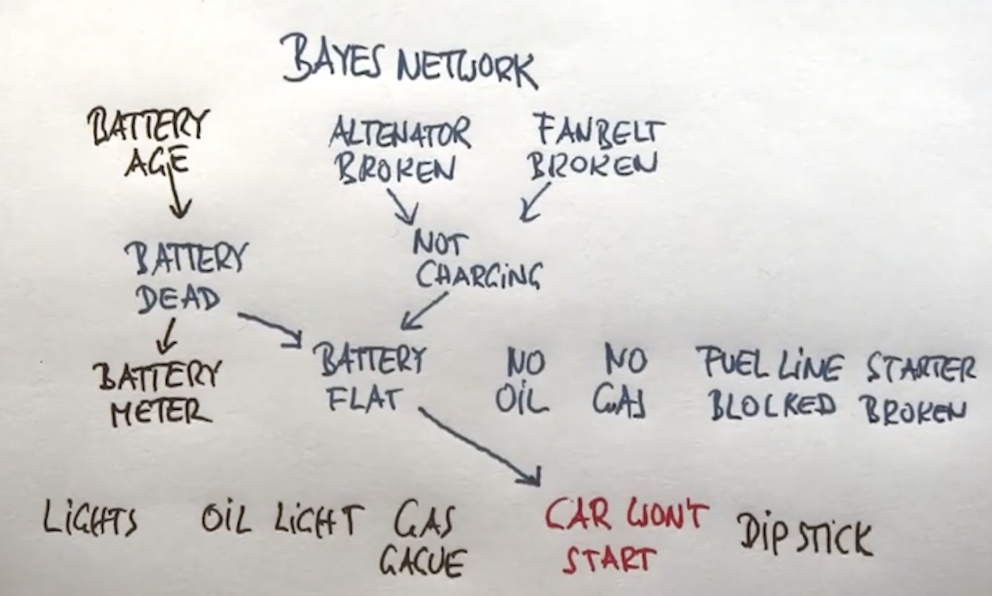 BAYES NETWORK
BATTERY
AGE
ALTENATOR
BROKEN
FANBELT
BROKEN
BATTERY
DEAD
NOT
CHARGING
BATTERY
METER
BATTERY
FLAT
NO
OIL
NO
GAS
FUEL LINE
BLOCKED
STARTER
BROKEN
LIGHTS
OIL LIGHT
GAS
GAGUE
CAR WON'T
START
DIP STICK